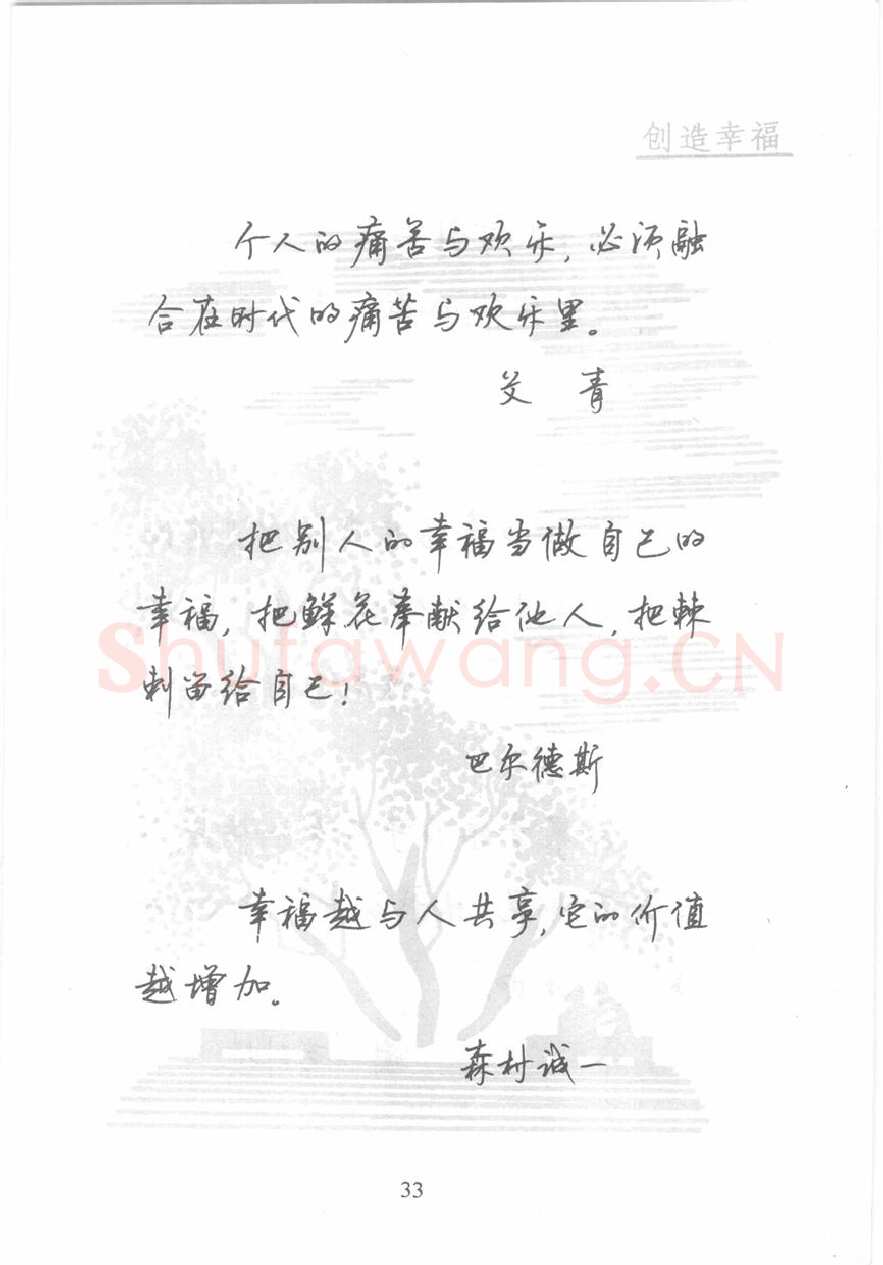 创造幸福
个人的痛苦与欢乐,必须融
合在时代的痛苦与欢乐里。
艾 青
把别人的幸福当做自己的
幸福,把鲜花奉献给他人,把棘
刺留给自己!
Shufawang.CN
巴尔德斯
幸福越与人共享,它的价值
越增加。
森村诚一
33